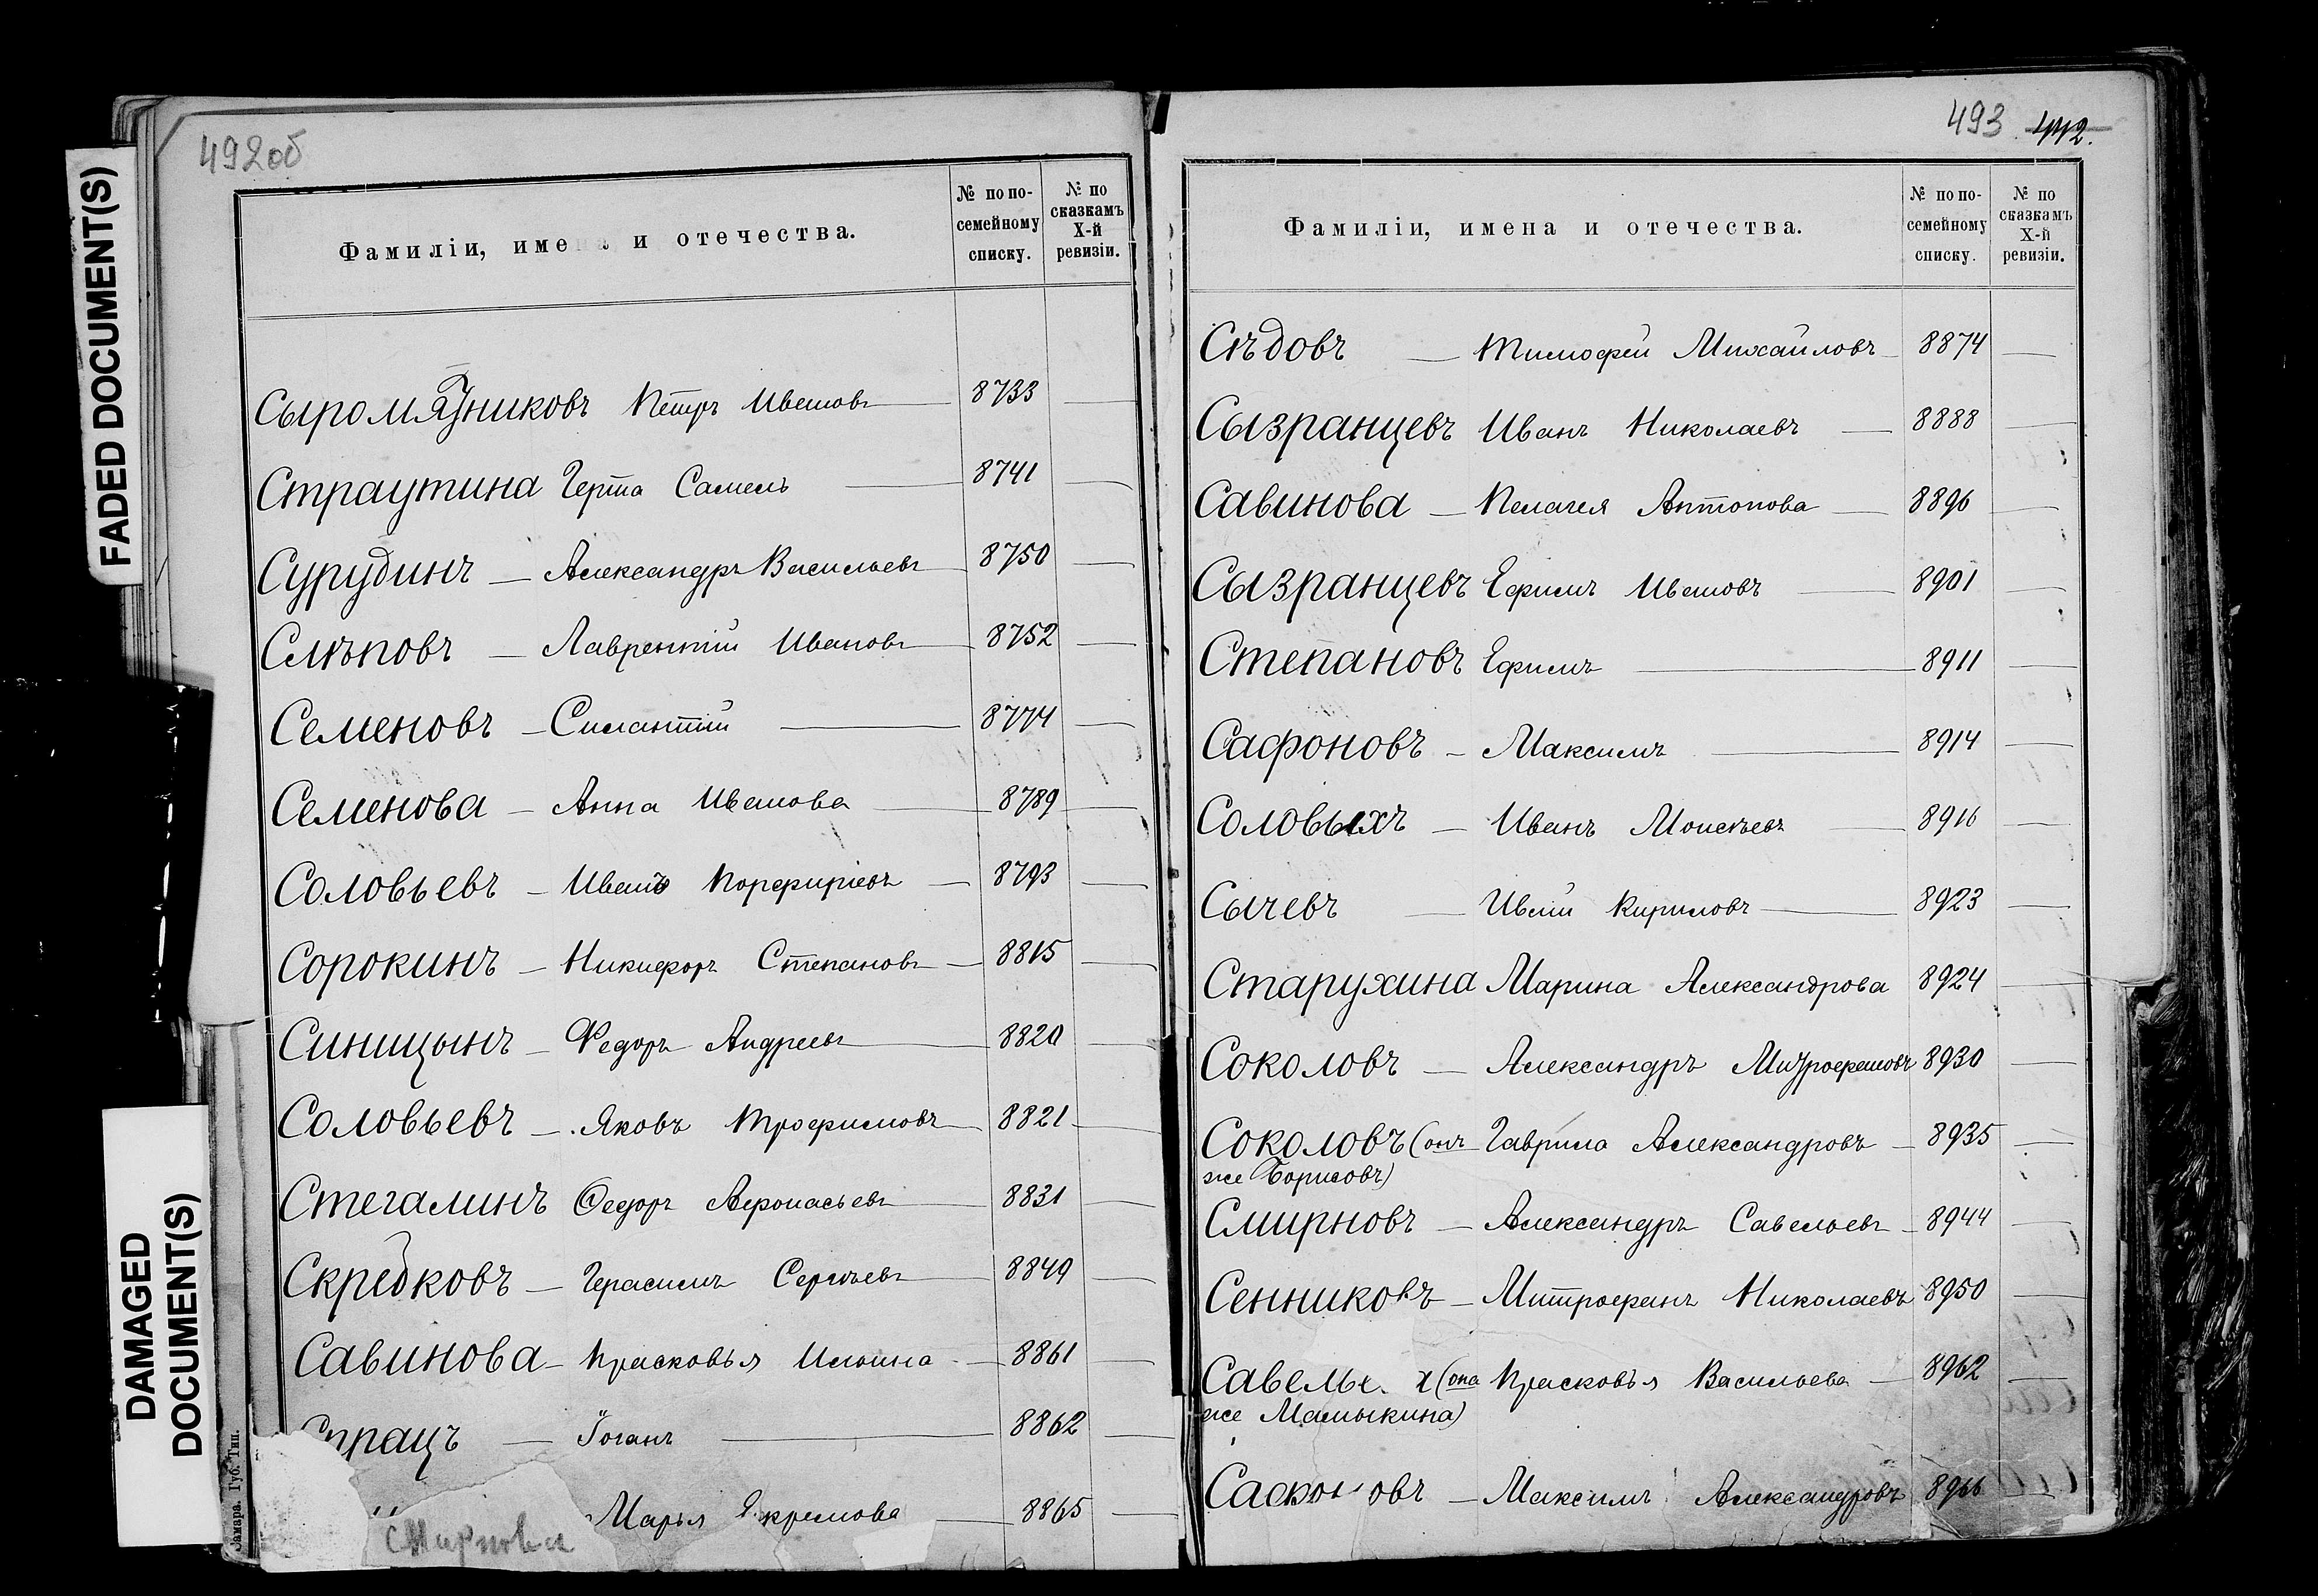 FADED DOCUMENT(S)
DAMAGED
DOCUMENT(S)
492об
Фамиліи, имена и отечества.
№ по по-
семейному
списку.
№ по
сказкамъ
X-й
ревизіи.
Сыромятниковъ Петръ Ивановъ 8733
Страутина Герта Самель 8741
Сурудинъ — Александръ Васильевъ 8750
Слѣповъ — Лаврентій Ивановъ 8752
Семеновъ — Силантій — 8774
Семенова — Анна Иванова 8789
Соловьевъ — Иванъ Порфиріевъ — 8793
Сорокинъ — Никифоръ Степановъ — 8815
Синицынъ — Федоръ Андреевъ 8820
Соловьевъ — Яковъ Трофимовъ 8821
Стегалинъ Ѳедоръ Афонасьевъ 8831
Скредковъ — Герасимъ Сергѣевъ 8849
Савинова — Прасковья Ильина — 8861
Спрацъ — Іоганъ — 8862
Смирнова Марья Ефремова — 8865
Самара. Губ. Тип.
493 442.
Фамиліи, имена и отечества.
№ по по-
семейному
списку.
№ по
сказкамъ
X-й
ревизіи.
Сѣдовъ — Тимофей Михайловъ 8874
Сызранцевъ Иванъ Николаевъ — 8888
Савинова — Пелагея Антонова — 8896
Сызранцевъ Ефимъ Ивановъ — 8901
Степановъ Ефимъ — 8911
Сафоновъ — Максимъ — 8914
Соловыхъ — Иванъ Моисѣевъ — 8916
Сычевъ — Ивлій Кириловъ — 8923
Старухина Марина Александрова 8924
Соколовъ — Александръ Митрофановъ 8930
Соколовъ (онъ Гаврила Александровъ — 8935
же Борисовъ)
Смирновъ — Александръ Савельевъ — 8944
Сенниковъ — Митрофанъ Николаевъ 8950
Савелье (она Прасковья Васильева — 8962
же Мамыкина)
Сафоновъ — Максимъ Александровъ 8966